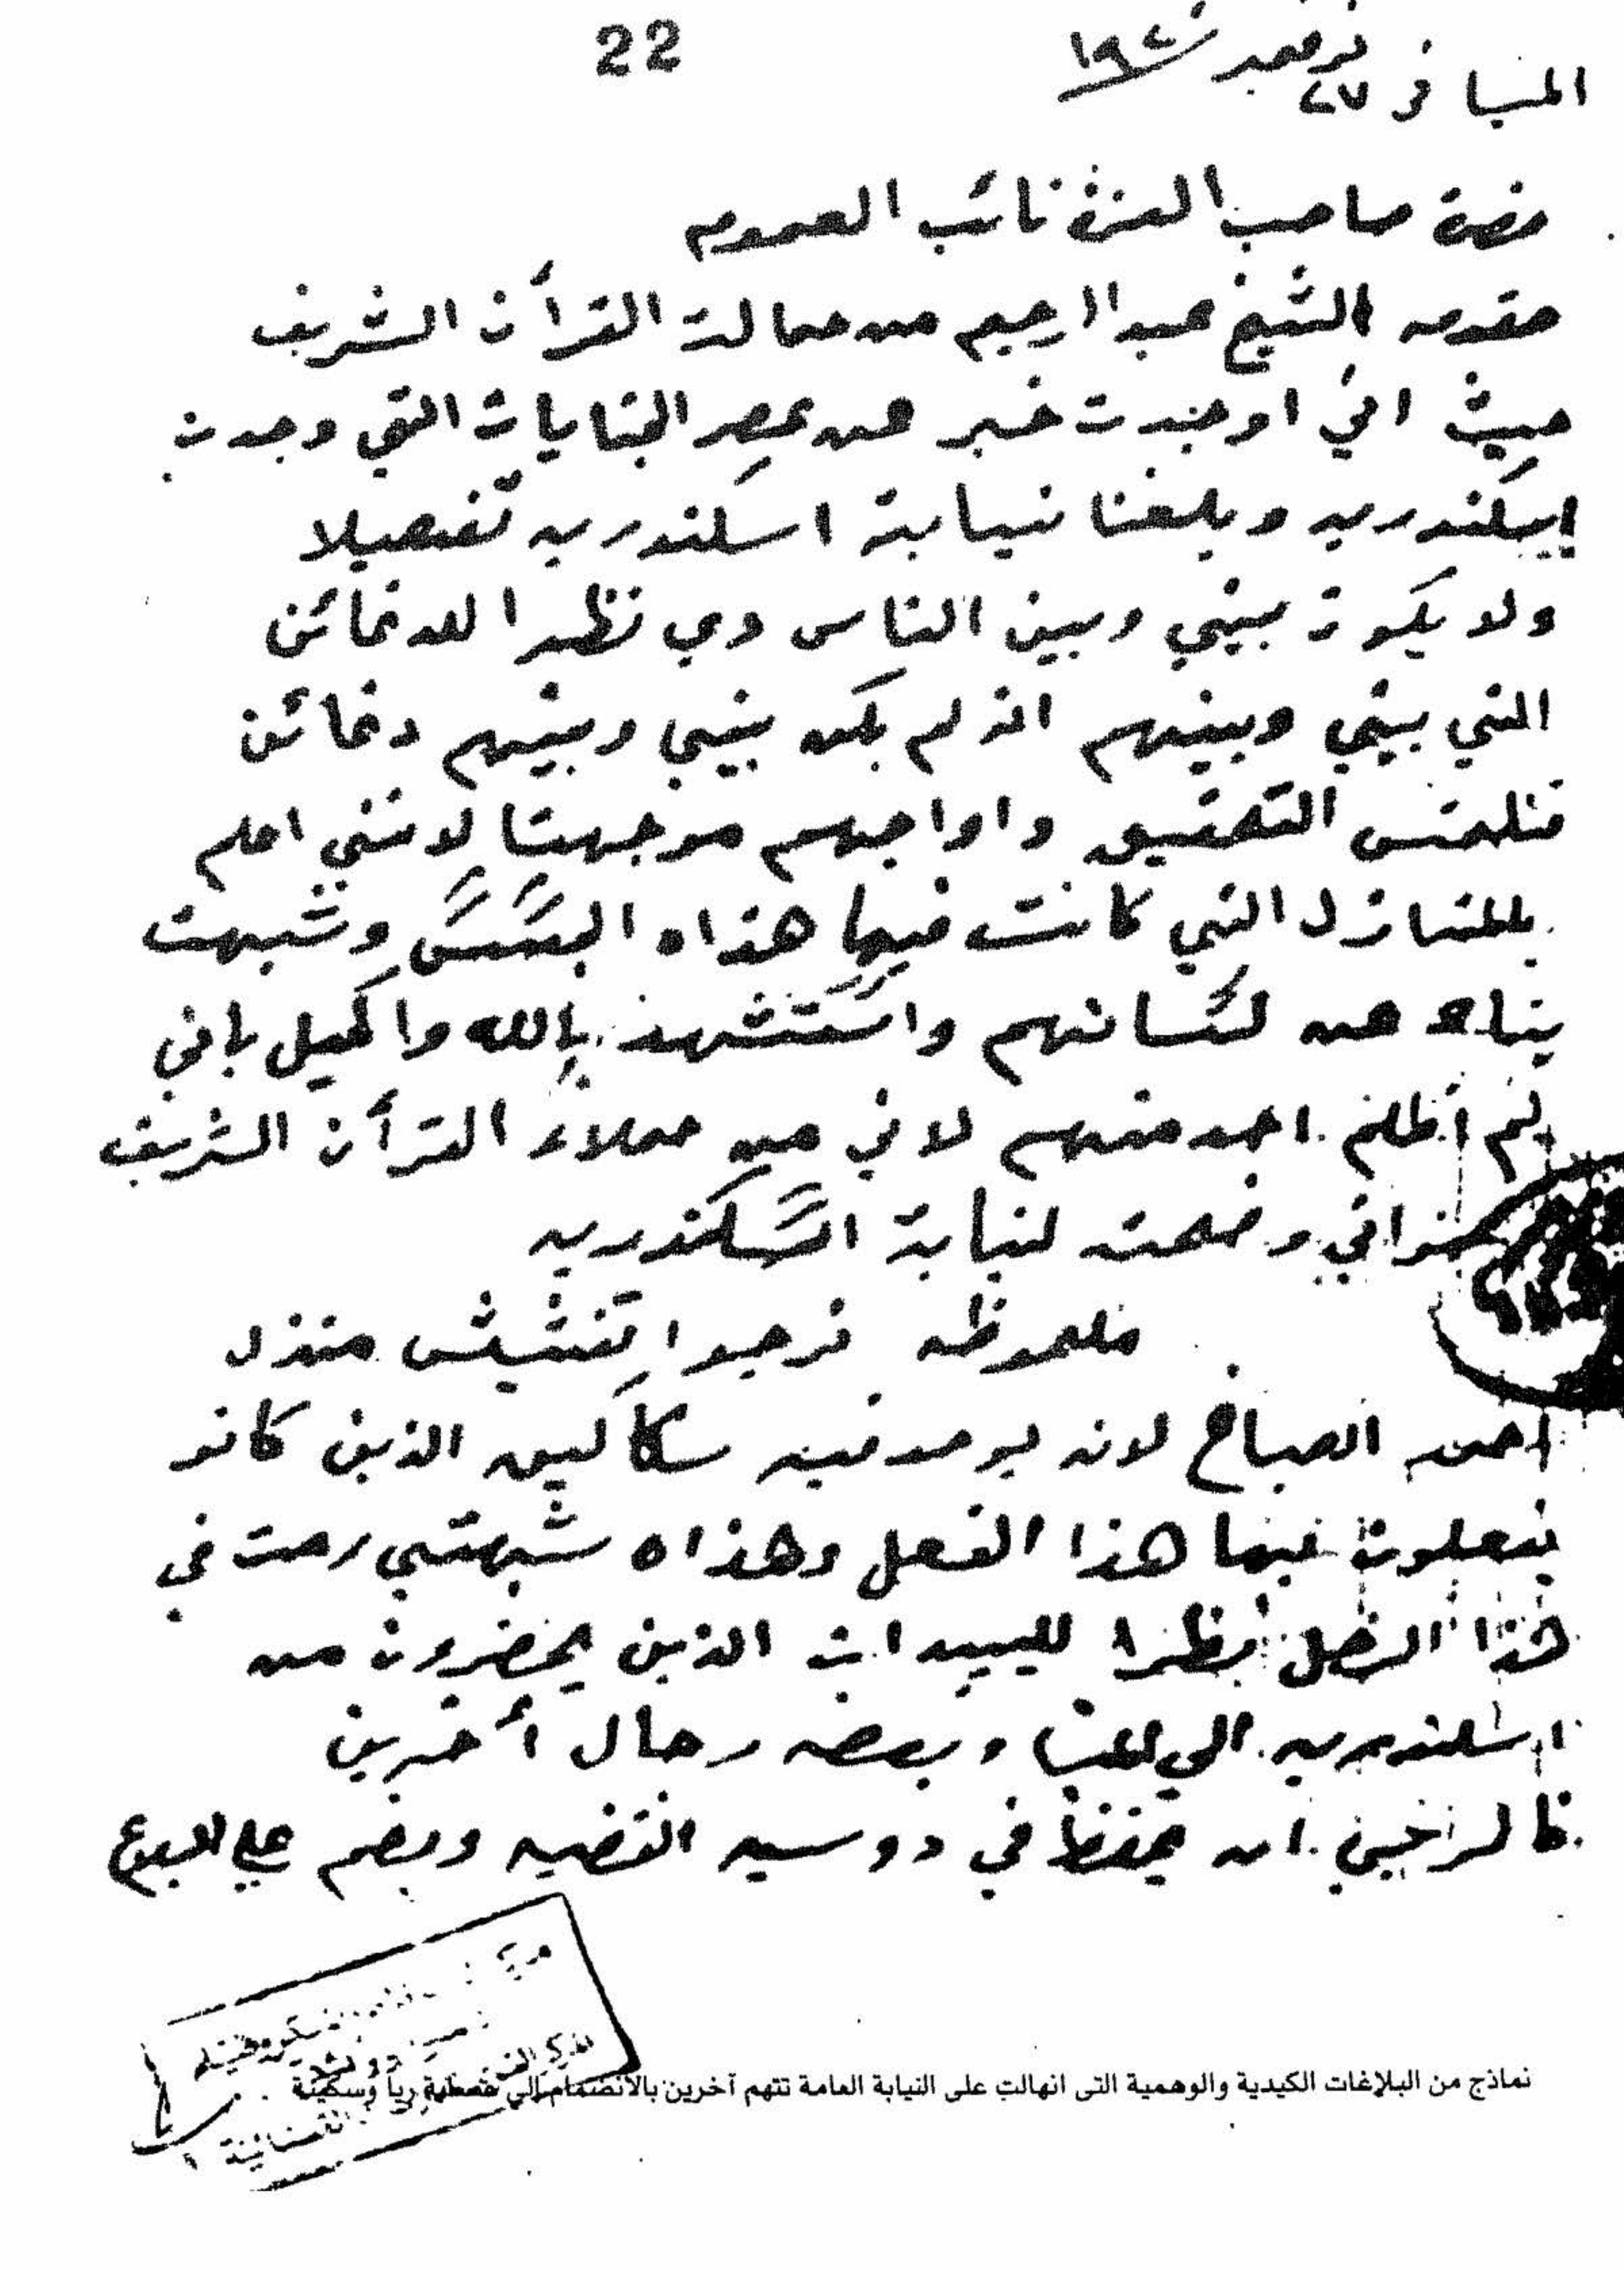 22
المنيا في ٢٧ نوفمبر ١٩٢٠
حضرة صاحب العزة نائب العموم
مقدمه الشيخ عبد الرحيم من حمالة القرأن الشريف
حيث اني اوجدت خبر عن عصر الجنايات التي وجدت
إسكندريه وبلغنا نيابة اسكندريه تفصيلا
ولا يكون بيني وبين الناس دي نظرا للدغائن
التي بيني وبينهم انذ لم يكن بيني وبينهم دغائن
فنلمتس التحقيق واواجهم موجهتا لانني اعلم
بلمنازل التي كانت فيها هذاه البسس وشبهت
عن لسانهم واستشهد بالله واكيل باني
لم أظلم احد منهم لاني من حملاء القرأن الشريف
واني وضحت لنيابة اسكندريه
ملحوظه نرجوا تفتيش منزل
احمد الصباخ لانه يوجد فيه سكاكين الذين كانو
يفعلون فيها هذا الفعل وهذاه شبهتي رحت في
هذا الرجل نظرا للسيدات الذين يحضرون من
اسكندريه الي المنيا وبعض رجال أخرين
فا لرخين ان تحفظ في دوسيه القضيه ويضم علي
نماذج من البلاغات الكيدية والوهمية التى انهالت على النيابة العامة تتهم آخرين بالانضمام إلى عصابة ريا وسكينة